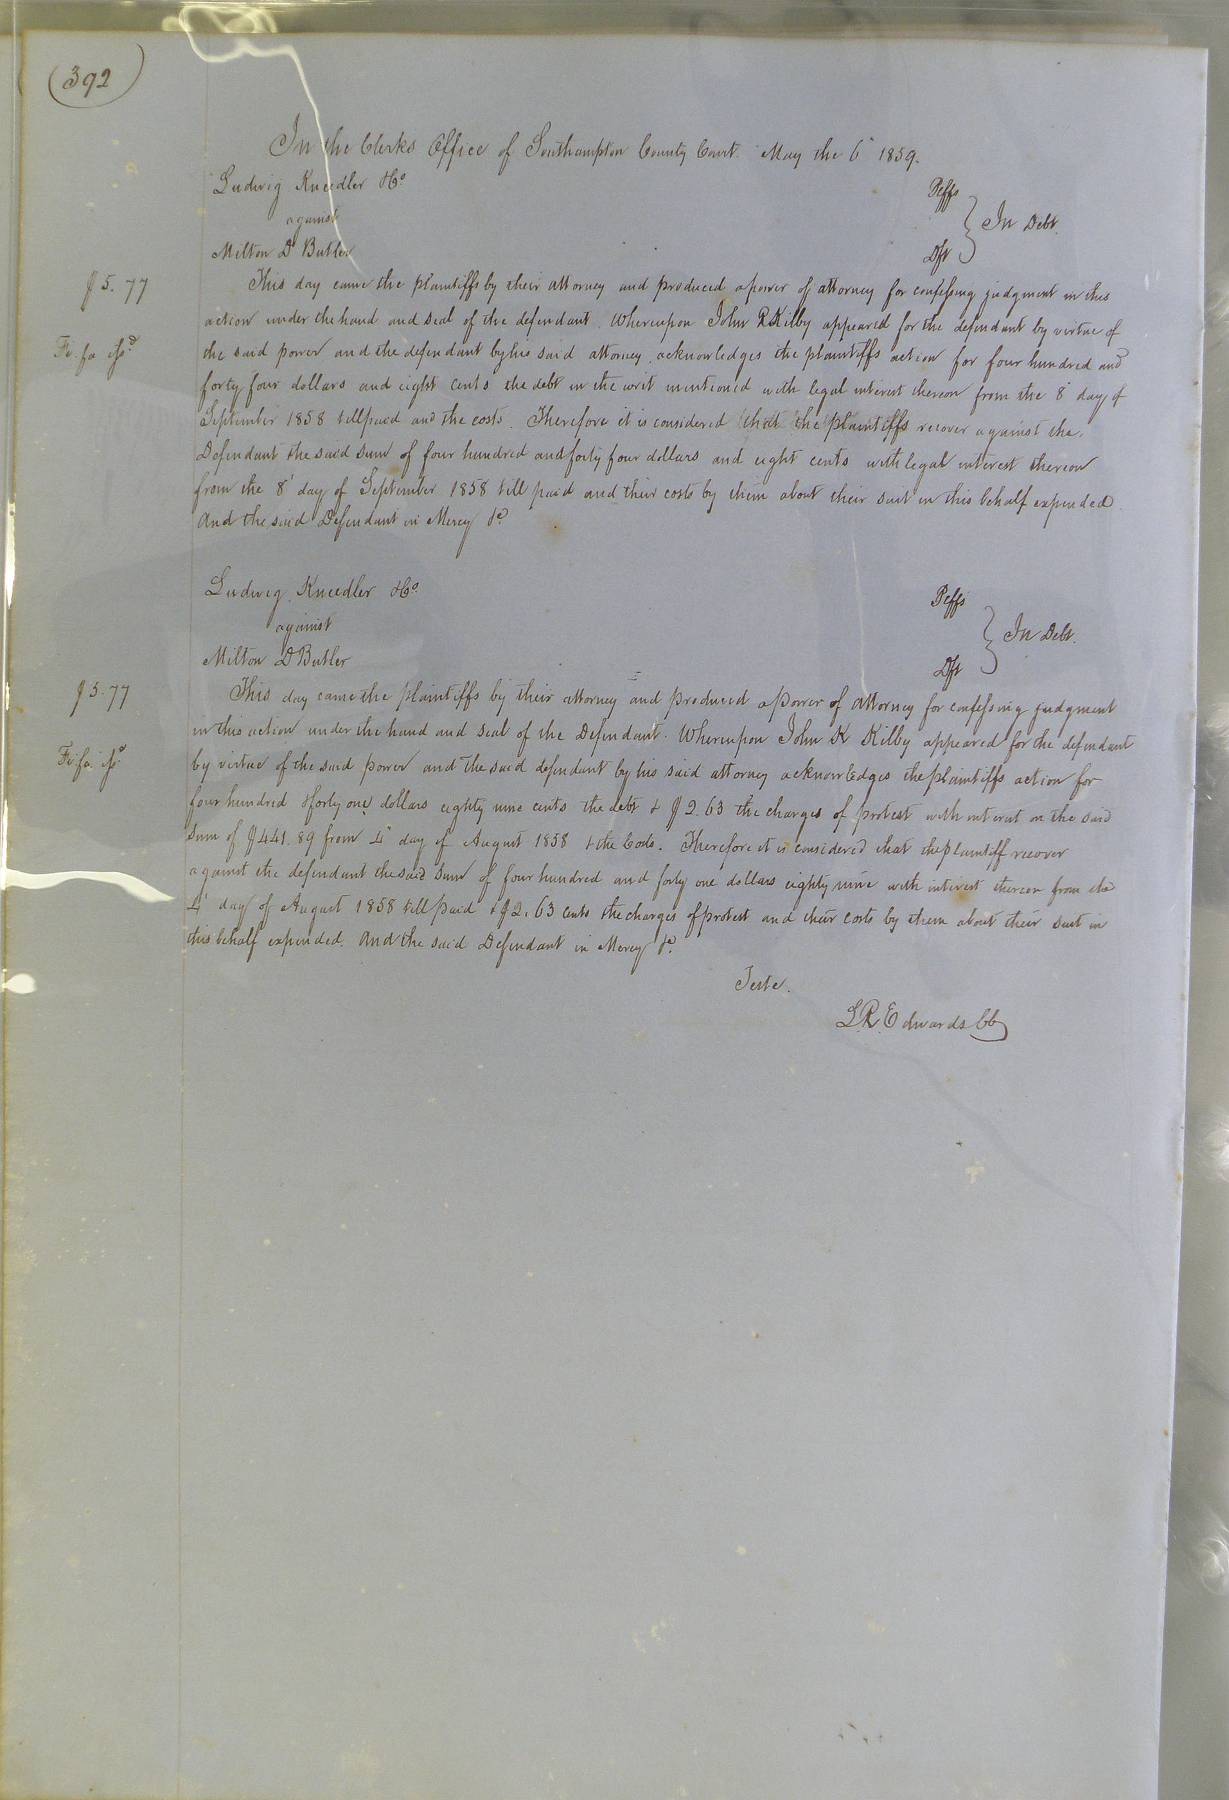 (392)
In the Clerks Office of Southampton County Court. May the 6th 1859.
Ludwig Kneedler & Co Plffs
against } In Debt.
Milton D Butler Dft
$5.77 This day came the plaintiffs by their attorney and produced a power of attorney for confessing judgment in this
action under the hand and seal of the defendant. Whereupon John R Kilby appeared for the defendant by virtue of
Fi. fa issd the said power and the defendant by his said attorney acknowledges the plaintiffs action for four hundred and
forty four dollars and eight cents the debt in the writ mentioned with legal interest thereon from the 8th day of
September 1858 till paid and the costs. Therefore it is considered that the plaintiffs recover against the
Defendant the said sum of four hundred and forty four dollars and eight cents with legal interest thereon
from the 8th day of September 1858 till paid and their costs by them about their suit in this behalf expended.
And the said Defendant in Mercy &c.
Ludwig Kneedler & Co. Plffs
against } In Debt.
Milton D Butler Dft
$5.77 This day came the plaintiffs by their attorney and produced a power of attorney for confessing judgment
in this action under the hand and seal of the Defendant. Whereupon John R Kilby appeared for the defendant
Fi. fa. issd by virtue of the said power and the said defendant by his said attorney acknowledges the plaintiffs action for
four hundred & forty one dollars eighty nine cents the debt & $2.63 the charges of protest with interest on the said
sum of $441.89 from 4th day of August 1858 & the Costs. Therefore it is considered that the plaintiff recover
against the defendant the said sum of four hundred and forty one dollars eighty nine with interest thereon from the
4th day of August 1858 till paid & $2.63 cents the charges of protest and their costs by them about their suit in
this behalf expended. And the said Defendant in Mercy &c.
Teste.
L.R. Edwards Clk